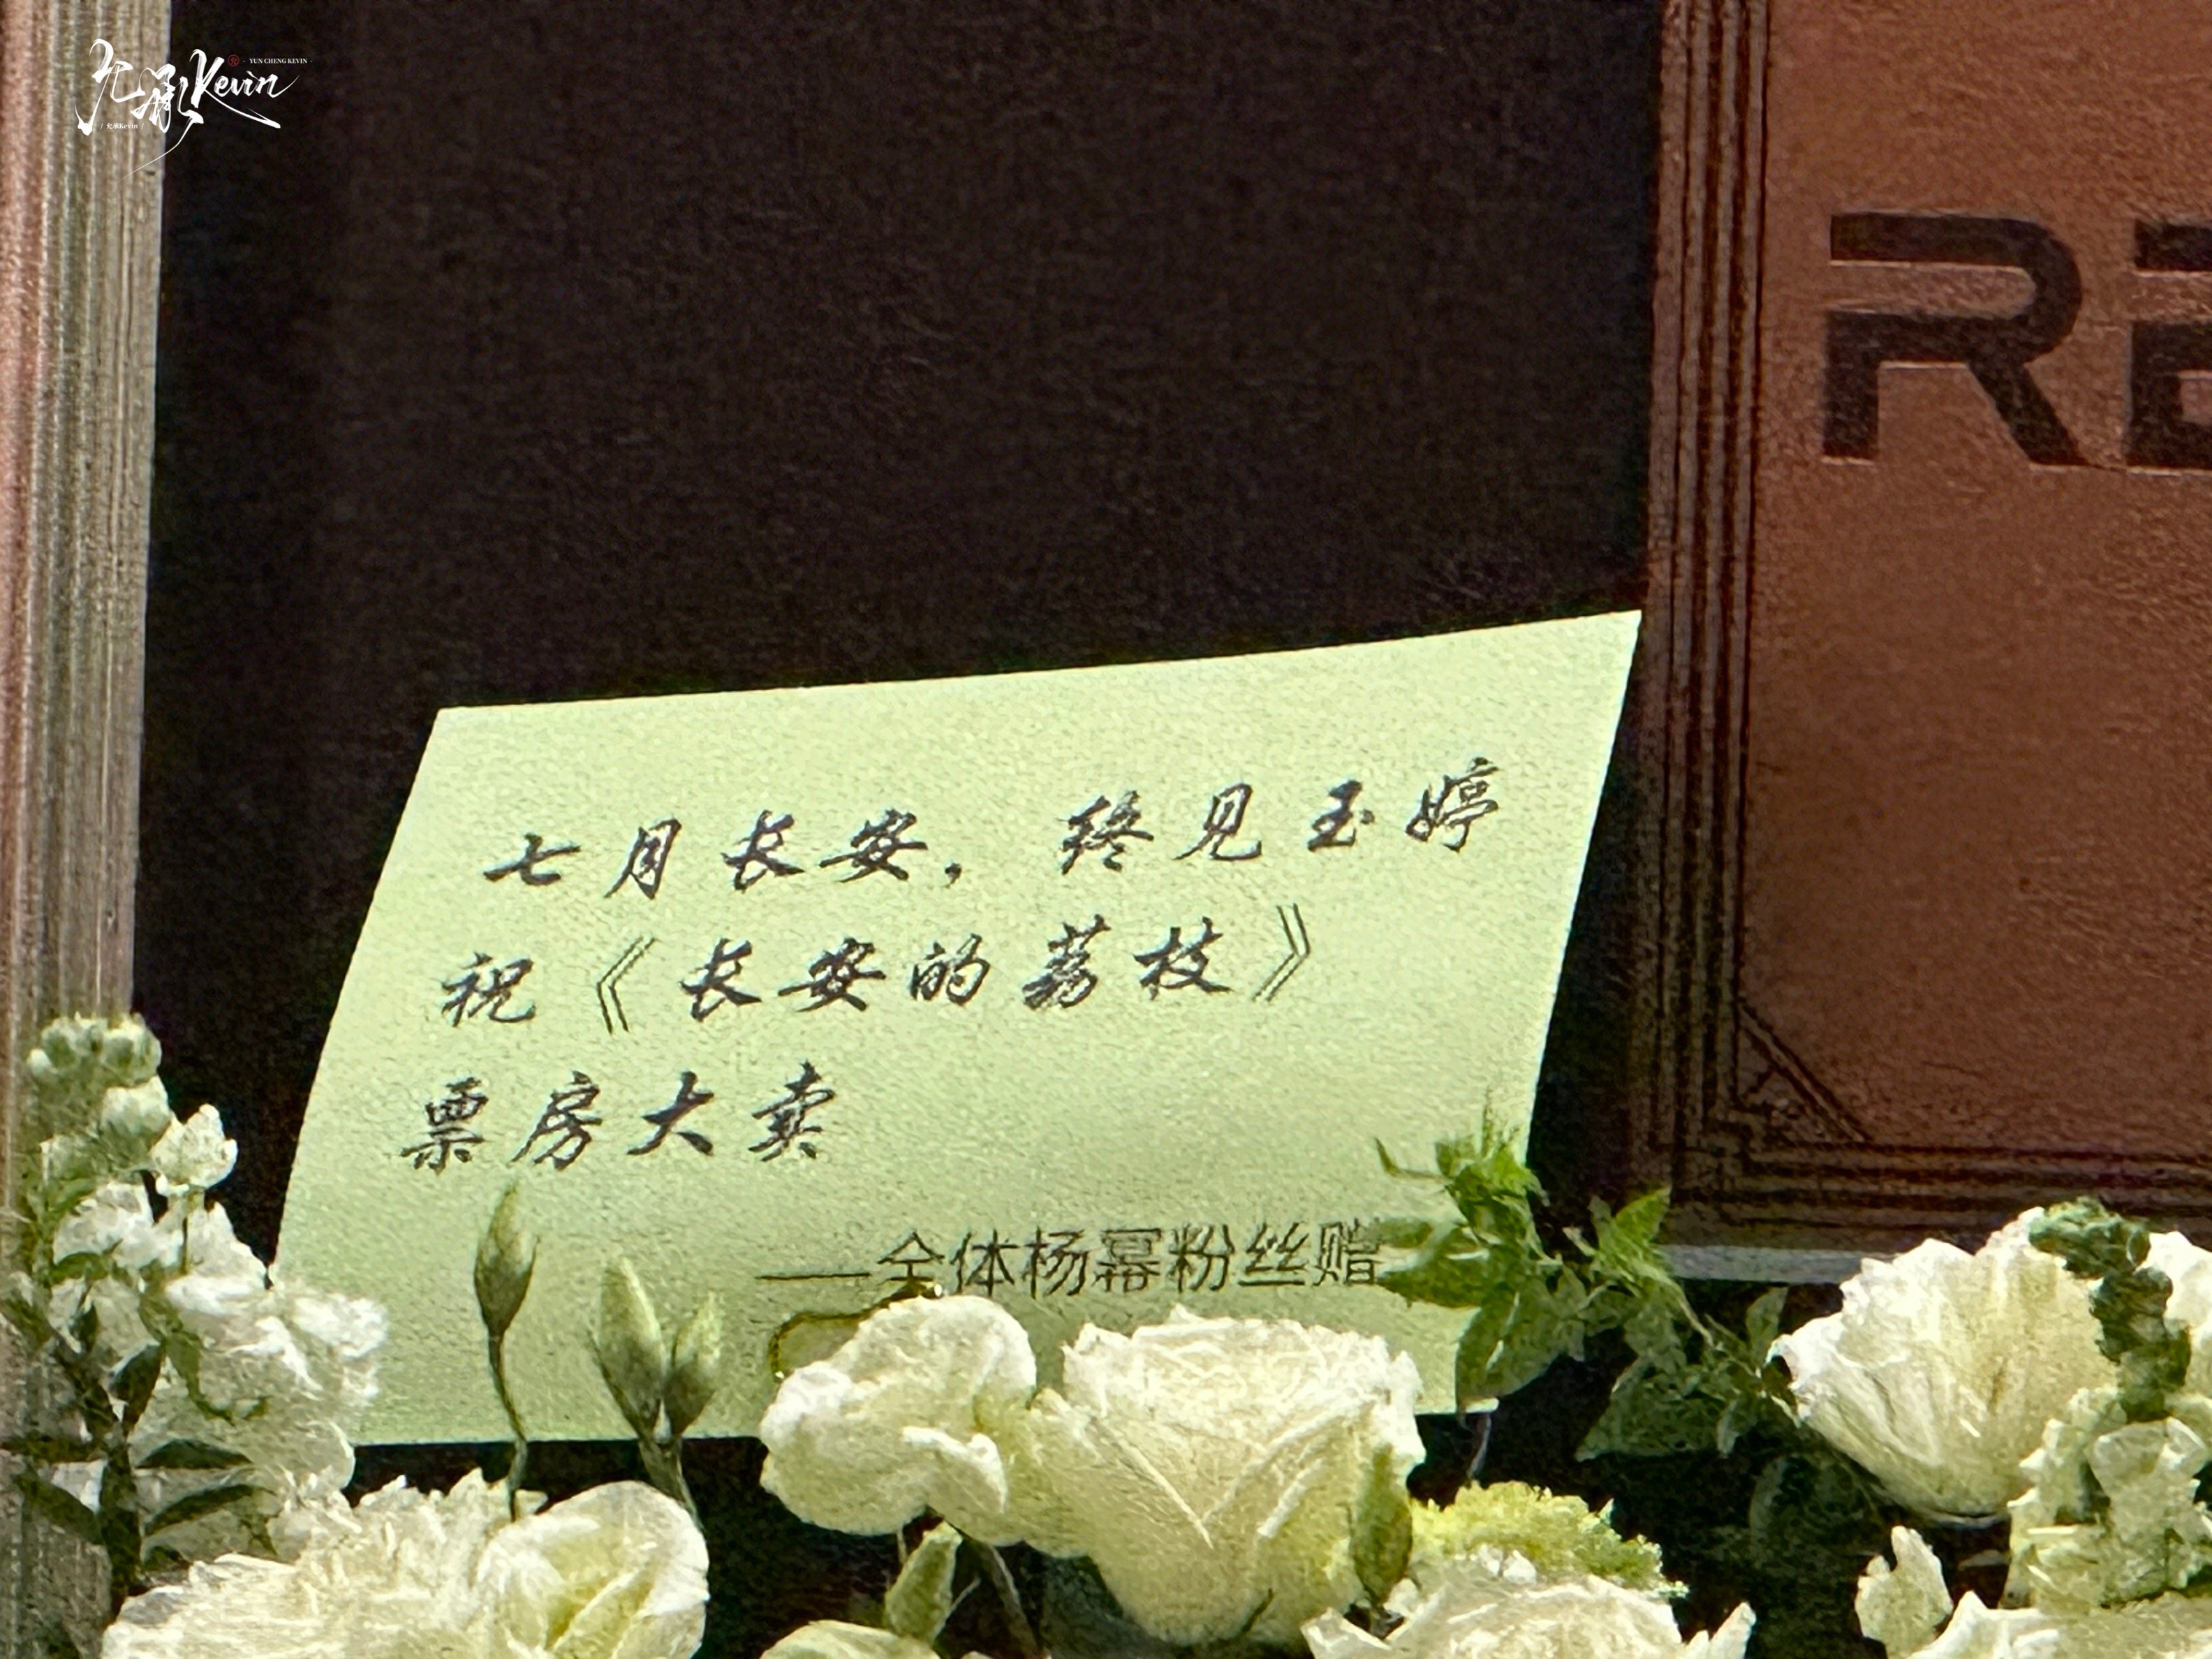 允承Kevin
YUN CHENG KEVIN
允承Kevin
七月长安，终见玉婷
祝《长安的荔枝》
票房大卖
——全体杨幂粉丝赠
RE